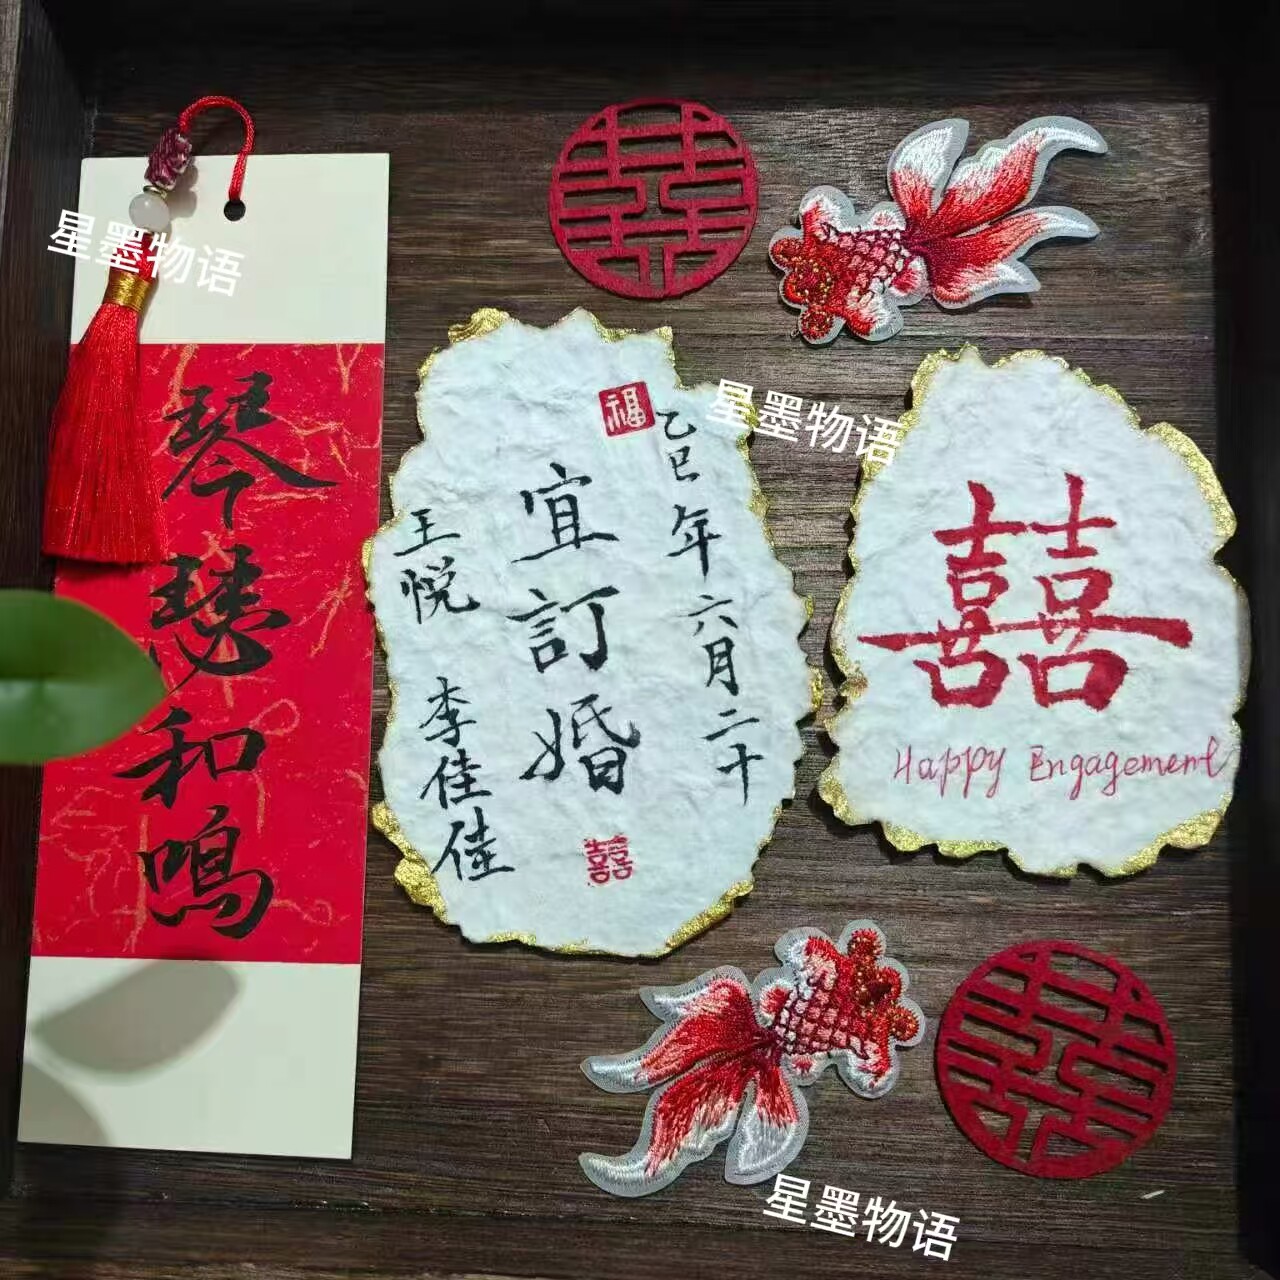 琴瑟和鳴
福
乙巳年六月二十
宜訂婚
王悦 李佳佳
囍
囍
Happy Engagement
囍
囍
星墨物语
星墨物语
星墨物语